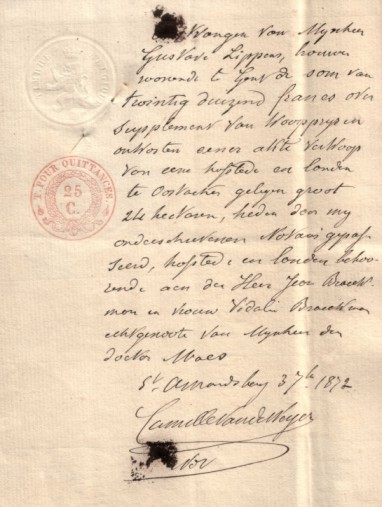 T. POUR QUITTANCES.
25
C.
van Mynheer
Gustave Lippens,
wonende te Gent de som van
twintig duizend francs over
supplement van
eener akte verkoop
van eene hofstede en landen
te Oostacker gelegen groot
24 hectaren, heden door my
ondergeschrevenen Notaris gepas-
seerd, hofstede en landen behoo-
rende aen den Heer Jean Braeck-
man en vrouw Vidalie Braeckman
echtgenoote van Mynheer den
doctor Maes
St. Amandsberg 3 7bre 1872
Camille Van de Weyer
Not